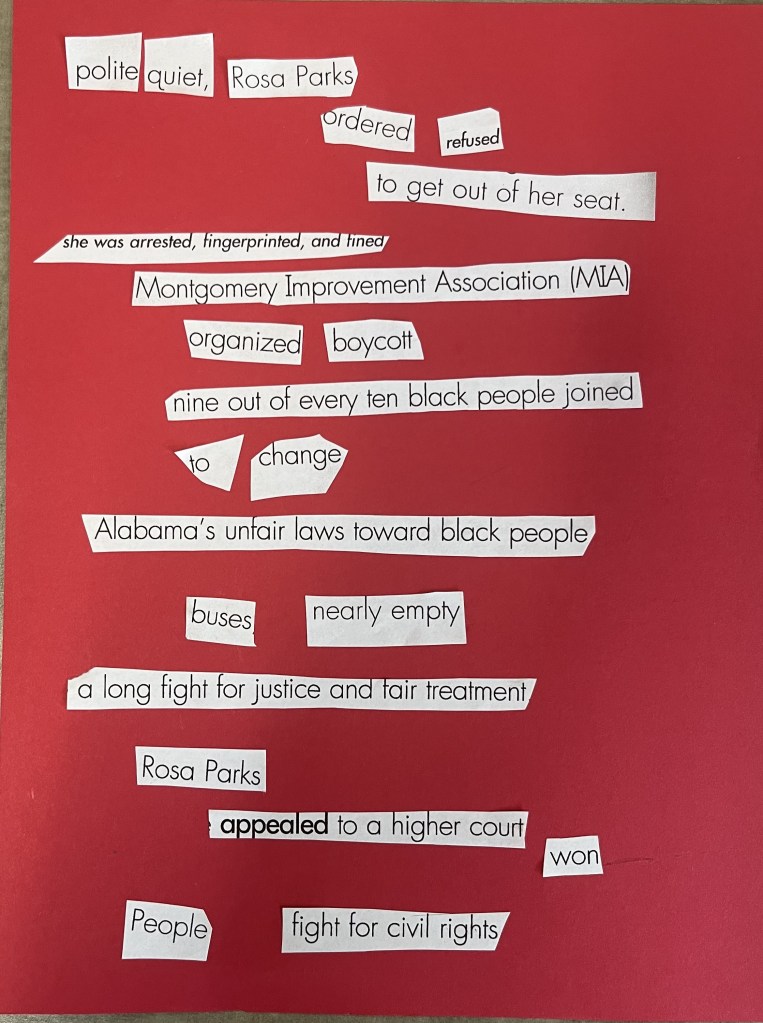 polite quiet, Rosa Parks
ordered refused
to get out of her seat.
she was arrested, fingerprinted, and fined
Montgomery Improvement Association (MIA)
organized boycott
nine out of every ten black people joined
to change
Alabama's unfair laws toward black people
buses nearly empty
a long fight for justice and fair treatment
Rosa Parks
appealed to a higher court
won
People fight for civil rights